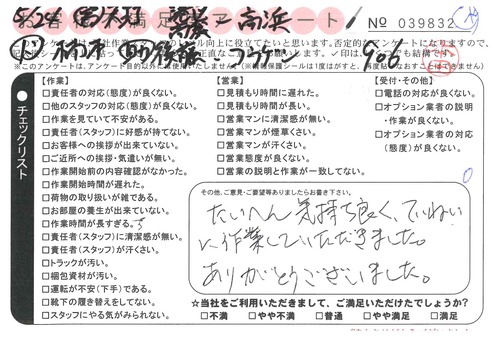 お客様満足アンケート
№ 039832
5/28
チェックリスト
【作業】
□責任者の対応(態度)が良くない。
□他のスタッフの対応(態度)が良くない。
□作業を見ていて不安がある。
□責任者(スタッフ)に好感が持てない。
□お客様への挨拶が出来ていない。
□ご近所への挨拶・気遣いが無い。
□作業開始前の内容確認がなかった。
□作業開始時間が遅れた。
□荷物の取り扱いが雑である。
□お部屋の養生が出来ていない。
□作業時間が長すぎる。
□責任者(スタッフ)に清潔感が無い。
□責任者(スタッフ)が汗くさい。
□トラックが汚い。
□梱包資材が汚い。
□運転が不安(下手)である。
□靴下の履き替えをしてない。
□スタッフにやる気がみられない。
【営業】
□見積もり時間に遅れた。
□見積もり時間が長い。
□営業マンに清潔感が無い。
□営業マンが煙草くさい。
□営業マンが汗くさい。
□営業態度が良くない。
□営業の説明と作業が一致してない。
【受付・その他】
□電話の対応が良くない。
□オプション業者の説明
・作業が良くない。
□オプション業者の対応
(態度)が良くない。
その他、ご意見・ご要望等ありましたらお書き下さい。
たいへん気持ち良く、ていねい
に作業していただきました。
ありがとうございました。
☆当社をご利用いただきまして、ご満足いただけたでしょうか?
□不満 □やや不満 □普通 □やや満足 □満足